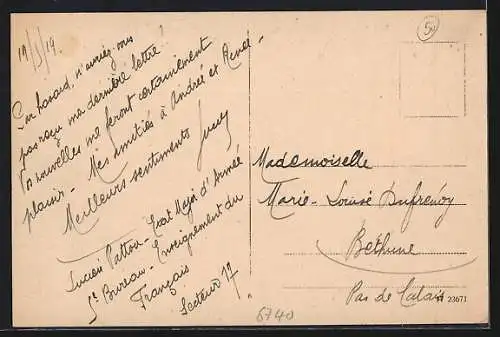 19/5/19.
Par hasard, n'auriez vous
pas reçu ma dernière lettre?
Vos nouvelles me feront certainement
plaisir - Mes amitiés à Andrée et
Meilleurs sentiments
Lucien Pattou - Etat Major d'Armée
5e Bureau - Enseignement du
Français
Secteur 17
5
Mademoiselle
Marie-Louise Dufrenoy
Bethune
Pas de Calais
23671
6740